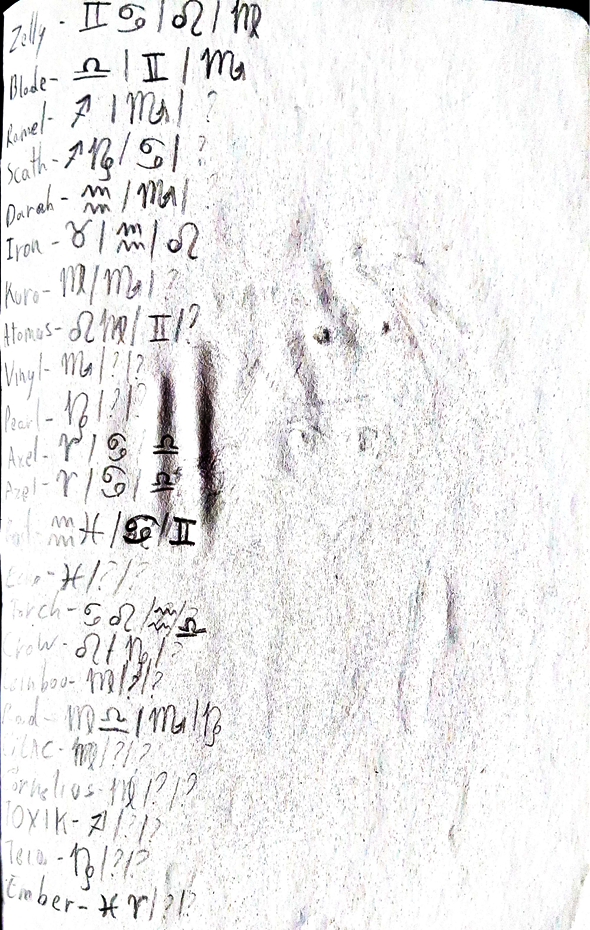 Zelly - ♊♋ / ♌ / ♍
Blade - ♎ / ♊ / ♏
Ramel - ♐ / ♏ / ?
Scath - ♐♑ / ♋ / ?
Darah - ♒ / ♏ / ?
Iron - ♉ / ♒ / ♌
Kuro - ♍ / ♏ / ?
Atomus - ♌♍ / ♊ / ?
Vinyl - ♏ / ? / ?
Pearl - ♑ / ? / ?
Axel - ♈ / ♋ ♎
Azel - ♈ / ♋ / ♎
♒♓ / ♋ / ♊
- ♓ / ? / ?
Torch - ♋♌ / ♒ / ♎
Crow - ♌ / ♑ / ?
♍ / ? / ?
- ♍♎ / ♏ / ♑
Lilac - ♍ / ? / ?
Cornelius - ♍ / ? / ?
TOXIK - ♐ / ? / ?
- ♑ / ? / ?
Ember - ♓♈ / ? / ?